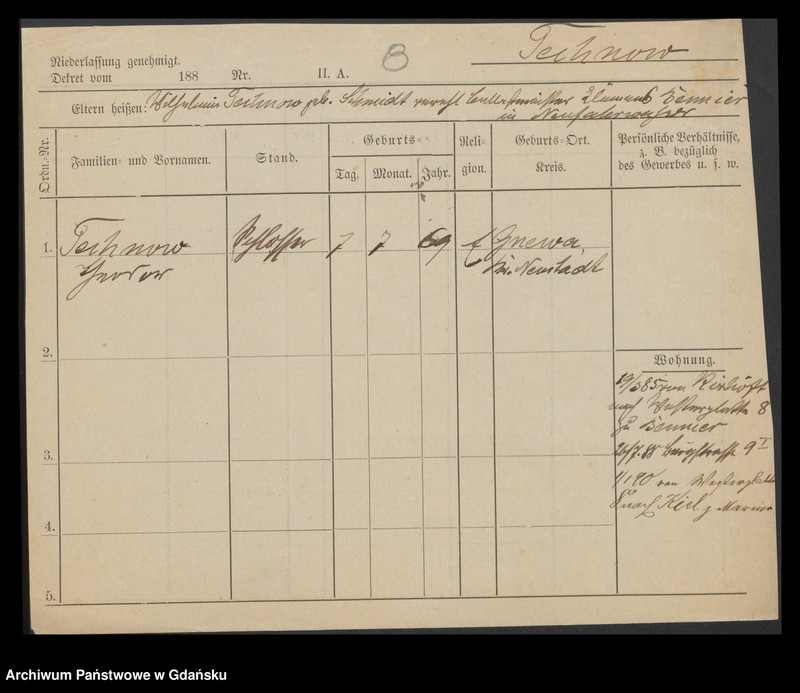 Technow
8
Niederlassung genehmigt.
Dekret vom 188 Nr. II. A.
Eltern heißen: Wilhelmine Technow geb. Schmidt verehl. Zennier
in Neufahrwasser
Ordn.-Nr.
Familien- und Vornamen.
Stand.
Geburts-
Tag.
Monat.
Jahr.
Religion.
Geburts-Ort.
Kreis.
Persönliche Verhältnisse,
z. B. bezüglich
des Gewerbes u. s. w.
1. Technow Schlosser 7 7 69 Gnewa,
Theodor Kr. Neustadt
2.
Wohnung.
85 von Rixhöft
nach Westerplatte 8
zu Zennier
26/7. 88 Burgstrasse 9 I
3.
1/1 90 von Westerplatte
8 nach Kiel z Marine
4.
5.
Archiwum Państwowe w Gdańsku